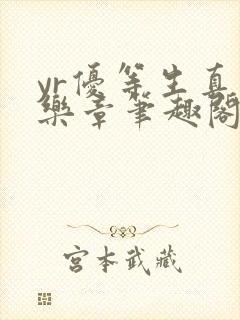 yr優等生真
樂章筆趣閣
宮本武藏